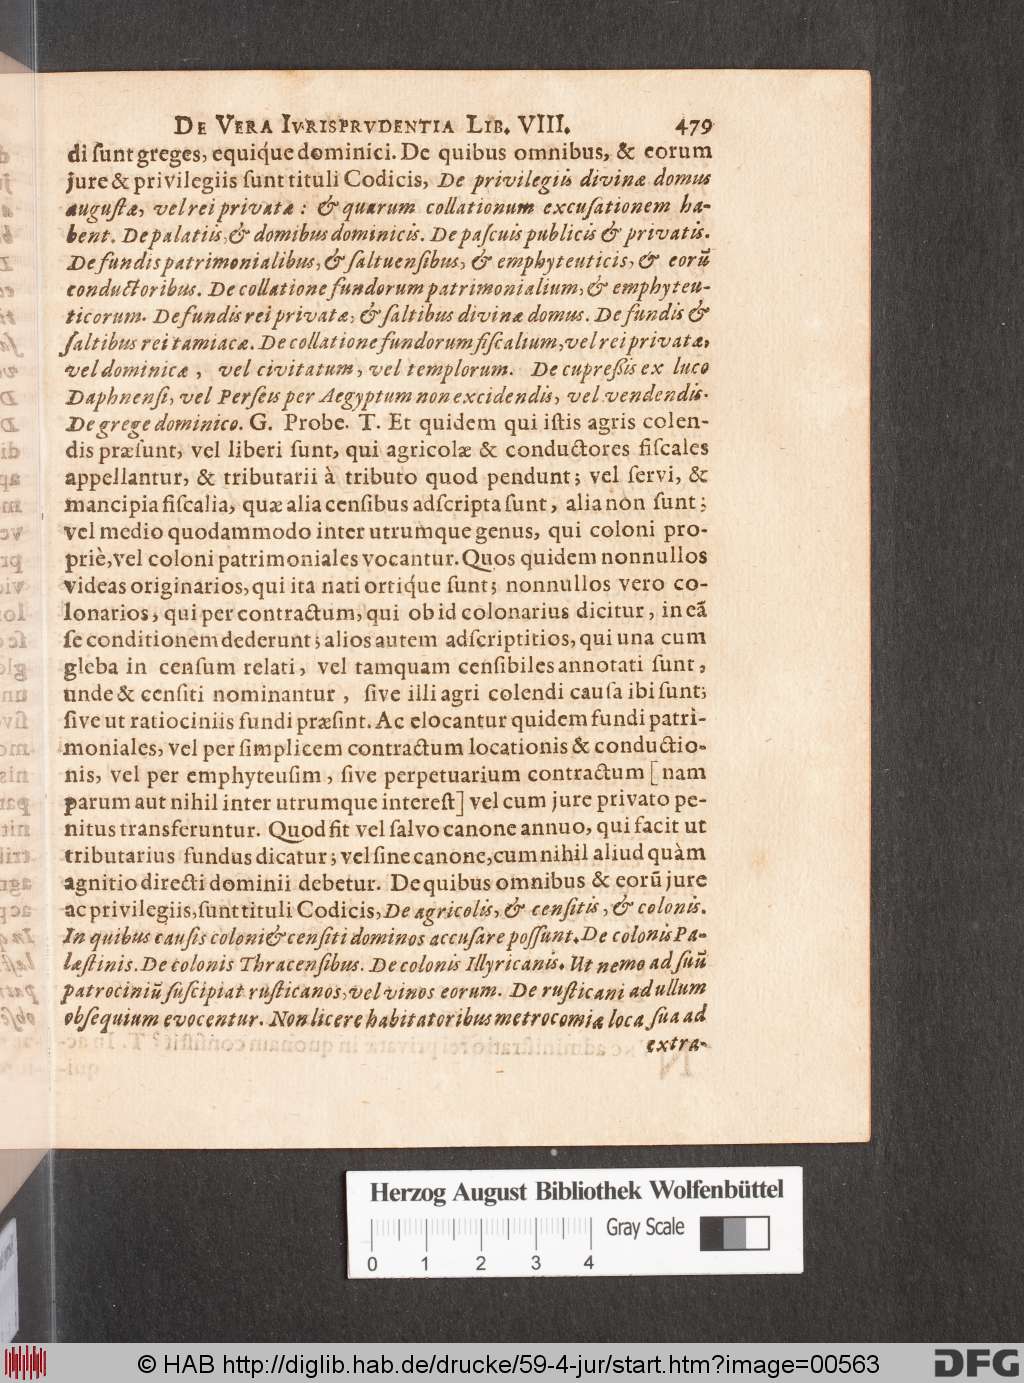 DE VERA IVRISPRVDENTIA LIB. VIII. 479
di ſunt greges, equiq́ue dominici. De quibus omnibus, & eorum
jure & privilegiis ſunt tituli Codicis, De privilegiis divinæ domus
auguſtæ, vel rei privatæ : & quarum collationum excuſationem ha-
bent. De palatiis, & domibus dominicis. De paſcuis publicis & privatis.
De fundis patrimonialibus, & ſaltuenſibus, & emphyteuticis, & eorũ
conductoribus. De collatione fundorum patrimonialium, & emphyteu-
ticorum. De fundis rei privatæ, & ſaltibus divinæ domus. De fundis &
ſaltibus rei tamiacæ. De collatione fundorum fiſcalium, vel rei privatæ,
vel dominicæ , vel civitatum, vel templorum. De cupreßis ex luco
Daphnenſi, vel Perſeis per Aegyptum non excidendis, vel vendendis.
De grege dominico. G. Probe. T. Et quidem qui iſtis agris colen-
dis præſunt, vel liberi ſunt, qui agricolæ & conductores fiſcales
appellantur, & tributarii à tributo quod pendunt; vel ſervi, &
mancipia fiſcalia, quæ alia cenſibus adſcripta ſunt, alia non ſunt;
vel medio quodammodo inter utrumque genus, qui coloni pro-
priè, vel coloni patrimoniales vocantur. Quos quidem nonnullos
videas originarios, qui ita nati ortiq́ue ſunt; nonnullos vero co-
lonarios, qui per contractum, qui ob id colonarius dicitur, in eã
ſe conditionem dederunt; alios autem adſcriptitios, qui una cum
gleba in cenſum relati, vel tamquam cenſibiles annotati ſunt,
unde & cenſiti nominantur , ſive illi agri colendi cauſa ibi ſunt;
ſive ut ratiociniis fundi præſint. Ac elocantur quidem fundi patri-
moniales, vel per ſimplicem contractum locationis & conductio-
nis, vel per emphyteuſim, ſive perpetuarium contractum [nam
parum aut nihil inter utrumque intereſt] vel cum jure privato pe-
nitus transferuntur. Quod fit vel ſalvo canone annuo, qui facit ut
tributarius fundus dicatur; vel ſine canone, cum nihil aliud quàm
agnitio directi dominii debetur. De quibus omnibus & eorũ jure
ac privilegiis, ſunt tituli Codicis, De agricolis, & cenſitis, & colonis.
In quibus cauſis coloni & cenſiti dominos accuſare poſſunt. De colonis Pa-
læſtinis. De colonis Thracenſibus. De colonis Illyricanis. Ut nemo ad ſuũ
patrociniũ ſuſcipiat ruſticanos, vel vinos eorum. De ruſticani ad ullum
obſequium evocentur. Non licere habitatoribus metrocomiæ loca ſua ad
extra-
Herzog August Bibliothek Wolfenbüttel
Gray Scale
0 1 2 3 4
© HAB http://diglib.hab.de/drucke/59-4-jur/start.htm?image=00563
DFG